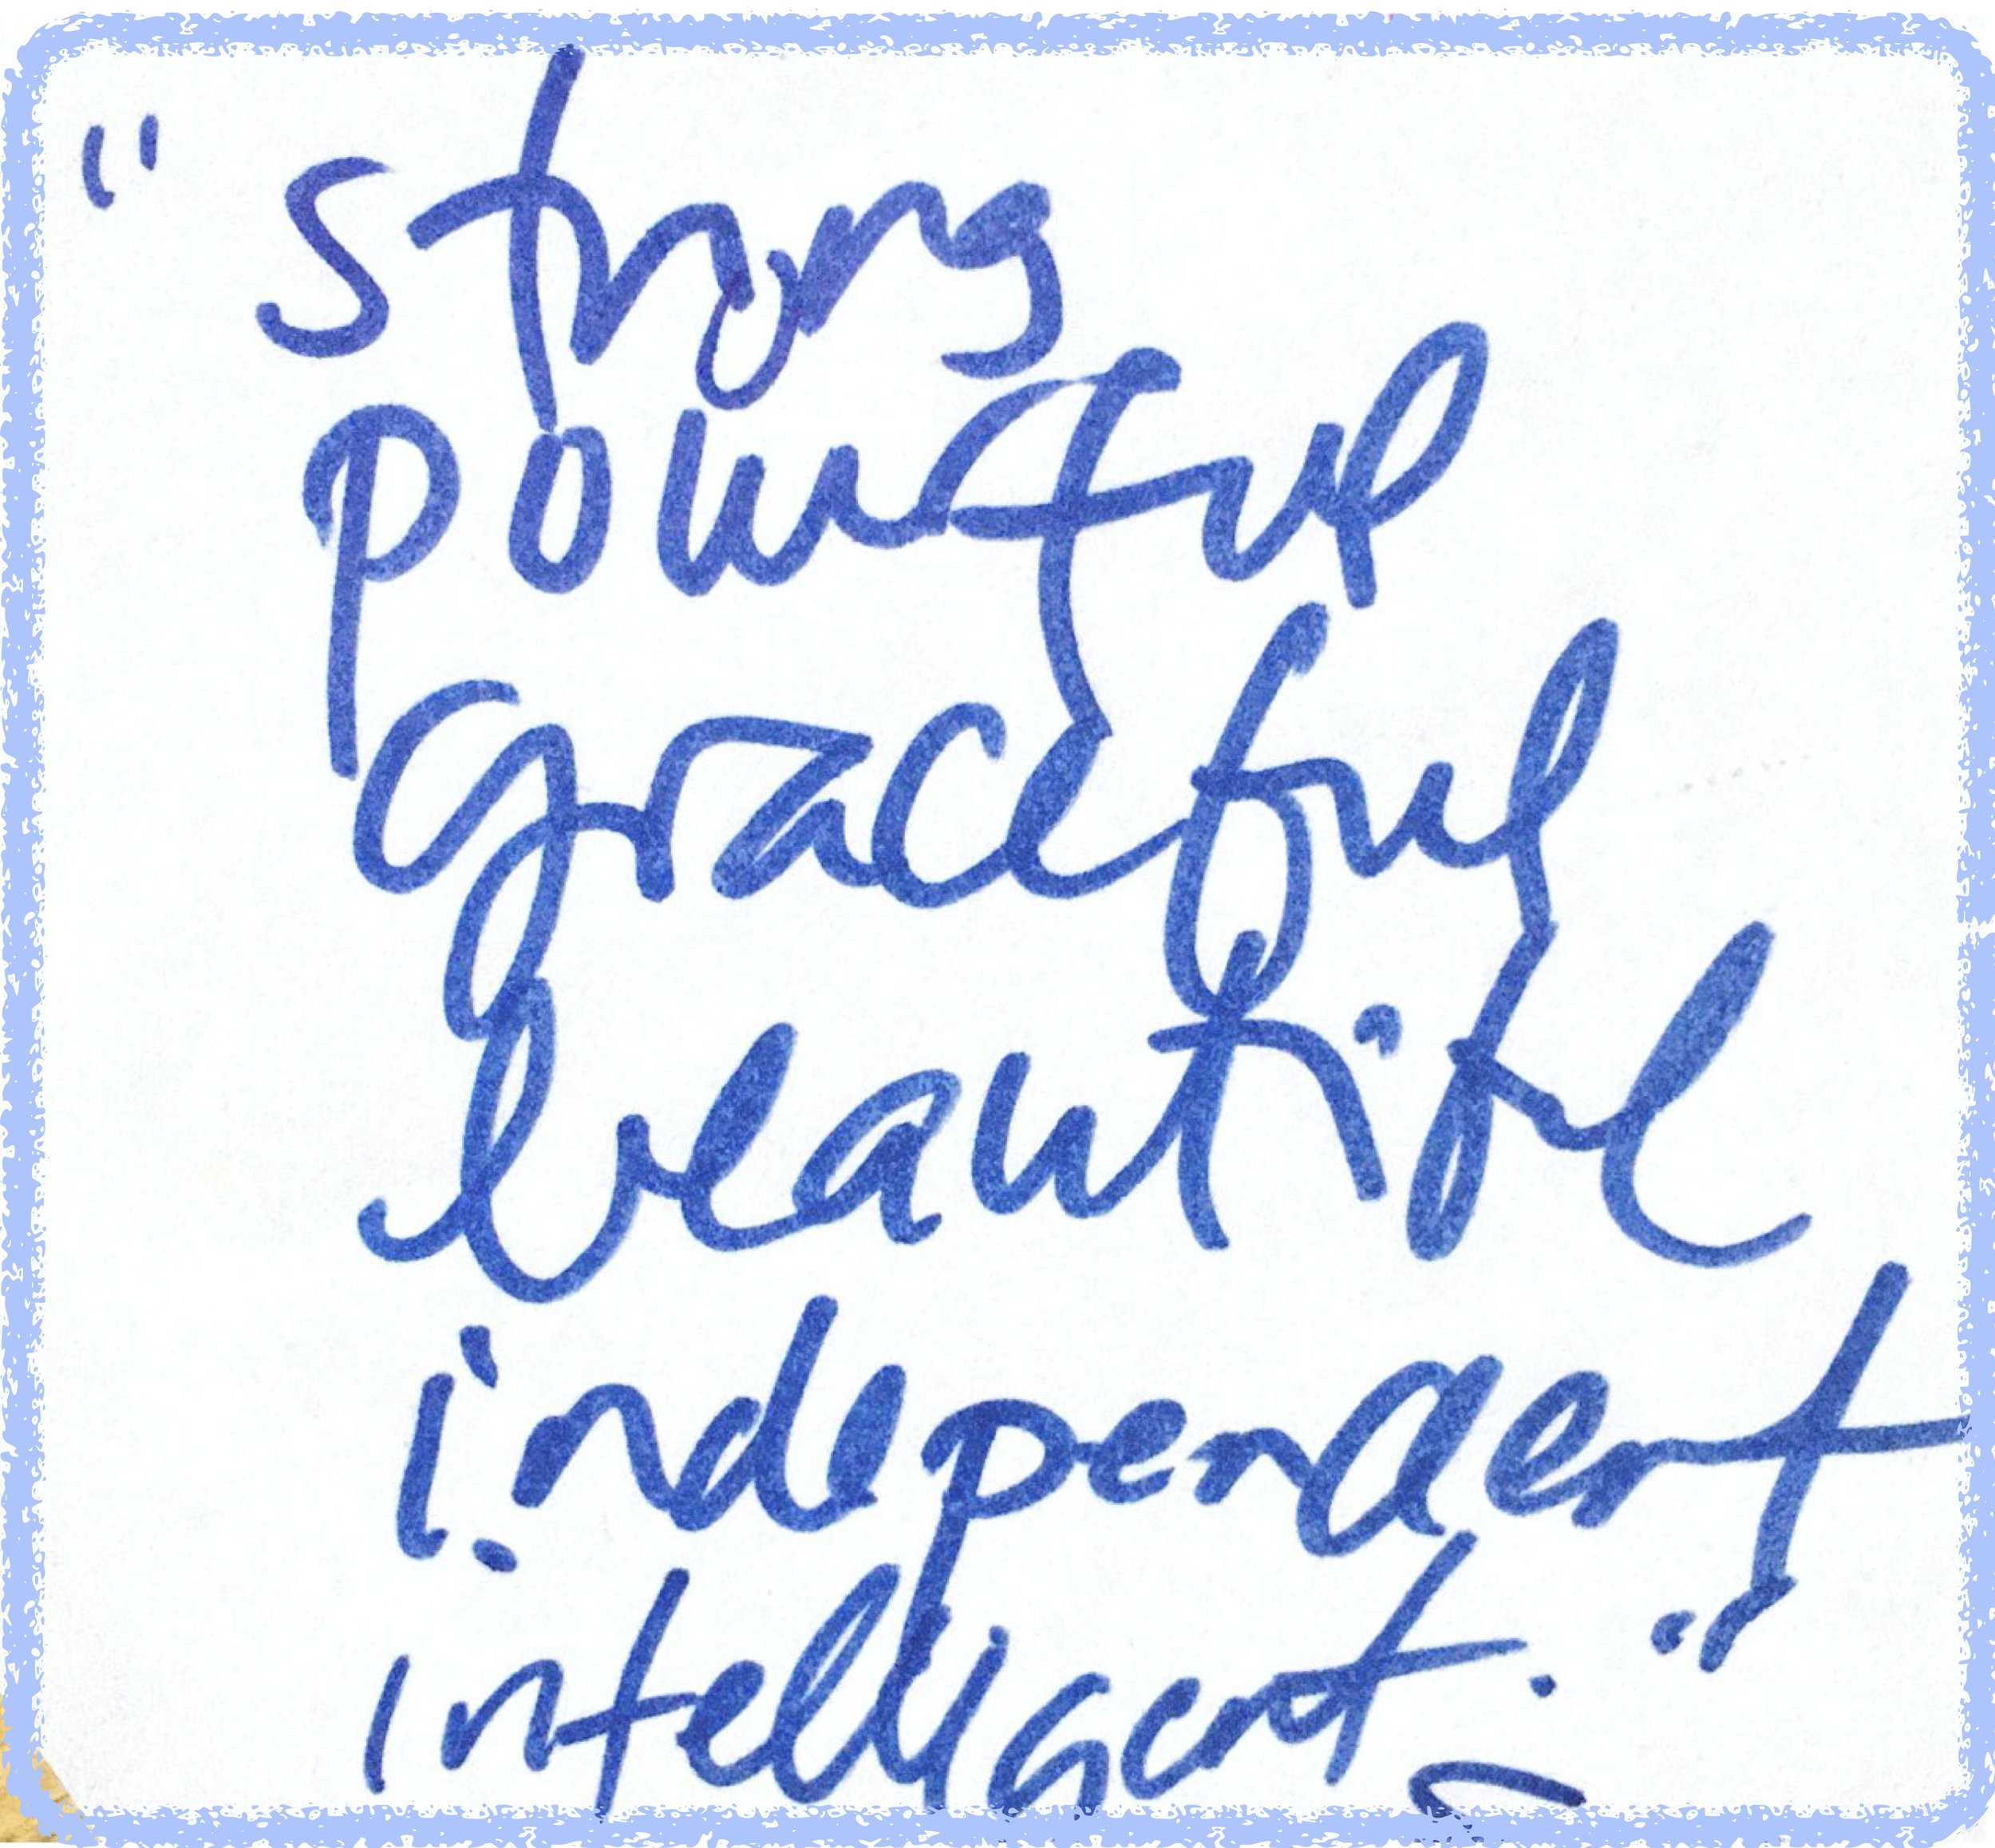 "strong
powerful
graceful
beautiful
independent
intelligent."